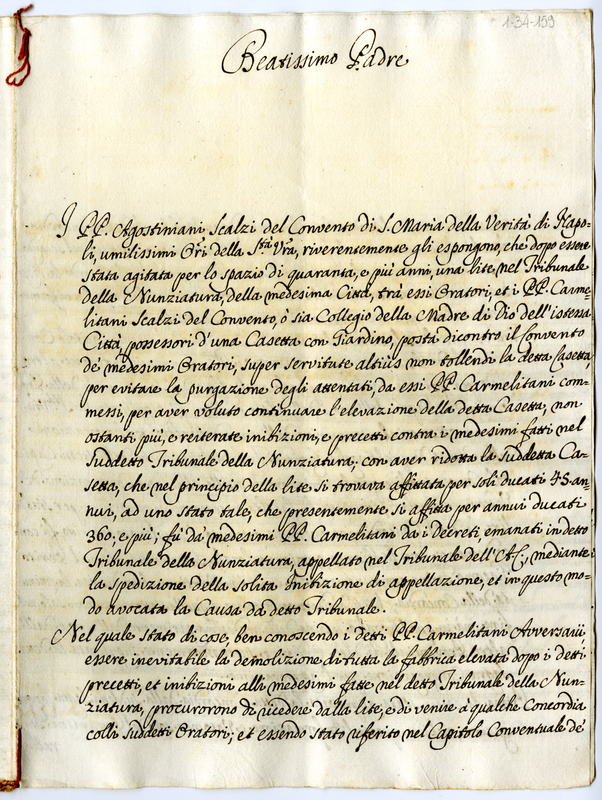 1-34-159
Beatissimo Padre
I PP. Agostiniani Scalzi del Convento di S. Maria della Verità di Napo-
li, umilissimi Orri della Stà Vra, riverentemente gli espongono, che dopo essere
stata agitata per lo spazio di quaranta, e più anni, una lite, nel Tribunale
della Nunziatura, della medesima Città, trà essi Oratori, et i PP. Carme-
litani Scalzi del Convento, ò sia Collegio della Madre di Dio dell'istessa
Città, possessori d'una Casetta con Giardino, posta dicontro il Convento
de' medesimi Oratori, super servitute altiùs non tollendi la detta Casetta,
per evitare la purgazione degli attentati, da essi PP. Carmelitani com-
messi, per aver voluto continuare l'elevazione della detta Casetta, non
ostanti più, e reiterate inibizioni, e precetti contra i medesimi fatti nel
suddetto Tribunale della Nunziatura; con aver ridotta la suddetta Ca-
setta, che nel principio della lite si trovava affittata per soli ducati 45. an-
nui, ad uno stato tale, che presentemente si affitta per annui ducati
360; e più; fù da' medesimi PP. Carmelitani da i Decreti, emanati in detto
Tribunale della Nunziatura, appellato nel Tribunale dell'A.C., mediante
la spedizione della solita Inibizione di appellazione, et in questo mo-
do avocata la Causa da detto Tribunale.
Nel quale stato di cose, ben conoscendo i detti PP. Carmelitani Avversarii,
essere inevitabile la demolizione di tutta la fabbrica elevata dopo i detti
precetti, et inibizioni alli medesimi fatte nel detto Tribunale della Nun-
ziatura, procurorono di recedere dalla lite, e di venire à qualche Concordia
colli suddetti Oratori; et essendo stato riferito nel Capitolo Conventuale de'